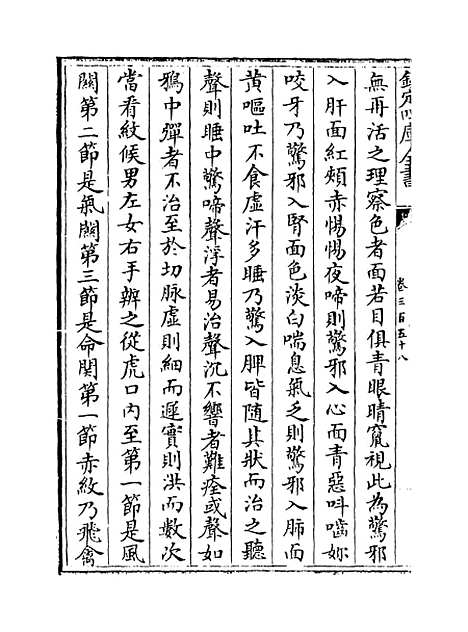 欽定四庫全書
卷三百五十八
無再活之理察色者面若目俱青眼睛竄視此為驚邪
入肝面紅頰赤惕惕夜啼則驚邪入心面青惡呌嚙妳
咬牙乃驚邪入腎面色淡白喘息氣乏則驚邪入肺面
黄嘔吐不食虚汗多睡乃驚入脾皆随其狀而治之聽
聲則睡中驚啼聲浮者易治聲沉不響者難痊或聲如
鴉中彈者不治至於切脉虚則細而遲實則洪而數次
當看紋候男左女右手辨之從虎口内至第一節是風
關第二節是氣關第三節是命関第一節赤紋乃飛禽